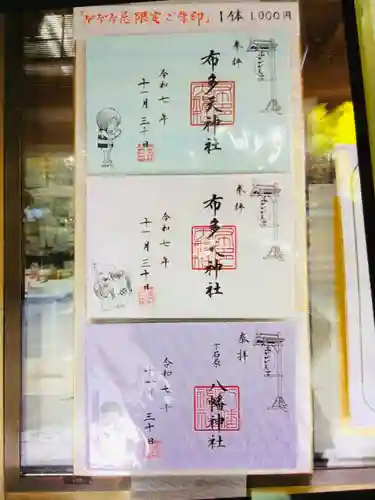 「ゲゲゲ忌限定ご朱印」1体1,000円
奉拝
布多天神社
令和七年
十一月三十日
奉拝
布多天神社
令和七年
十一月三十日
奉拝
下石原
八幡神社
令和七年
十一月三十日